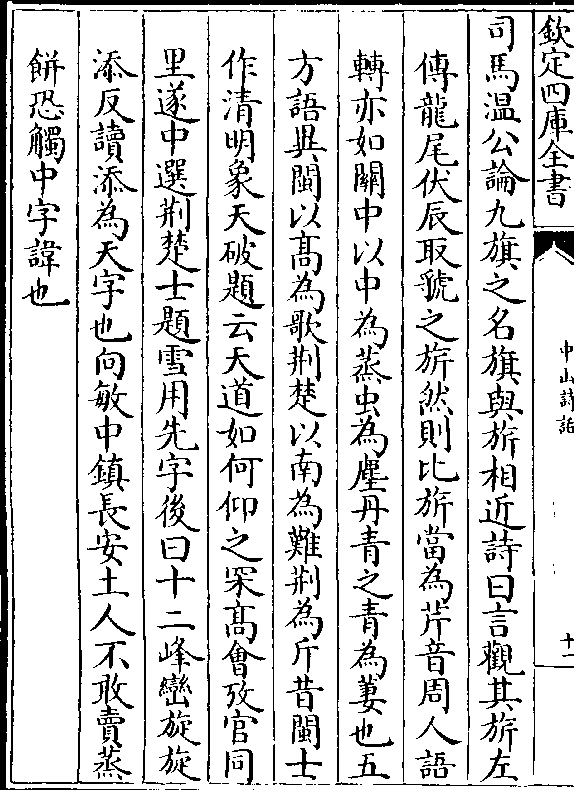 欽定四庫全書
中山詩話
十二
司馬温公論九旗之名旗與旂相近詩曰言觀其旂左
傳龍尾伏辰取虢之旂然則比旂當為芹音周人語
轉亦如關中以中為蒸虫為塵丹青之青為萋也五
方語異閩以髙為歌荆楚以南為難荆為斤昔閩士
作清明象天破題云天道如何仰之罙髙㑹攷官同
里遂中選荆楚士題雪用先字後曰十二峰巒旋旋
添反讀添為天字也向敏中鎮長安土人不敢賣蒸
餅恐觸中字諱也